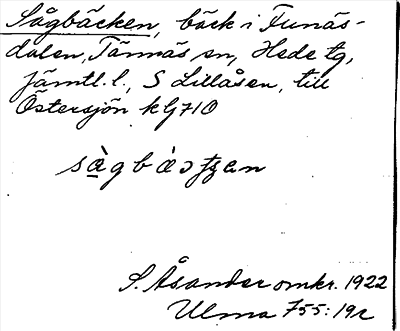 Sågbäcken, bäck i Funäs-
dalen, Tännäs sn, Hede tg,
Jämtl. l., S Lillåsen, till
Östersjön k G710
S. Åsander omkr. 1922
Ulma 755:19r